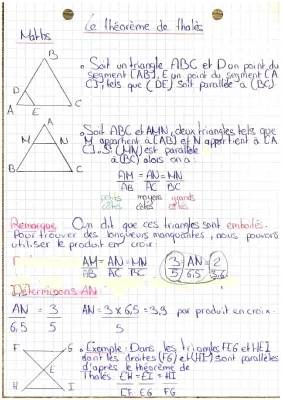 Le théorème de thalès
Maths
B
• Soit un triangle ABC et D un point du
segment [AB], E un point du segment [A
C], tels que (DE) soit parallèle à (BC)
D
A E C
A
• Soit ABC et AMN, deux triangles tels que
M appartient à [AB] et N appartient à [A
C]. Si (MN) est parallèle
à (BC) alors on a :
M N
B C
AM = AN = MN
AB AC BC
petits moyens grands
côtés côtés côtés
Remarque On dit que ces triangles sont emboîtés.
Pour trouver des longueurs manquantes, nous pouvons
utiliser le produit en croix :
AM = AN = MN
AB AC BC
3 = AN = 2
5 6,5 3,6
Déterminons AN :
AN = 3 AN = 3 x 6,5 = 3,9 par produit en croix.
6,5 5 5
F G
E
H I
• Exemple : Dans les triangles EFG et HEI
dont les droites (FG) et (HI) sont parallèles
d'après le théorème de
Thalès. EH = EI = HI
EF EG FG